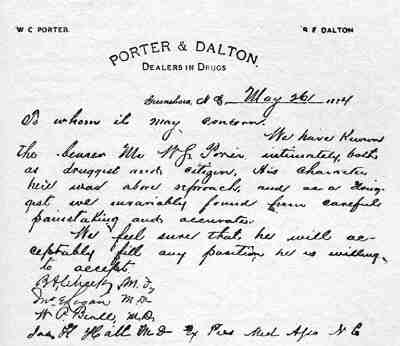 W C PORTER.
R F DALTON
PORTER & DALTON.
DEALERS IN DRUGS
Greensboro, N.C. May 26 1884
To whom it may concern.
We have known
the bearer Mr W S Porter, intimately, both
as druggist and citizen, His character
here was above reproach, and as a drug-
gist we invariably found him careful
painstaking and accurate.
We feel sure that he will ac-
ceptably fill any position he is willing
to accept.
M.D,
Jno E Logan M.D.
W P Beall, M.D.
Jas K Hall M D Ex Pres Med Ass N C